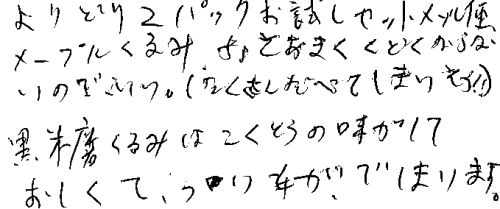 よりどり2パックお試しセットメール便
メープルくるみ よ。てあまくくどくなからな
いのでいい。(たくさんたべてしまいそう!!)
黒糖くるみはこくとうの味がして
おいしくて、つい 手がでてしまいます。